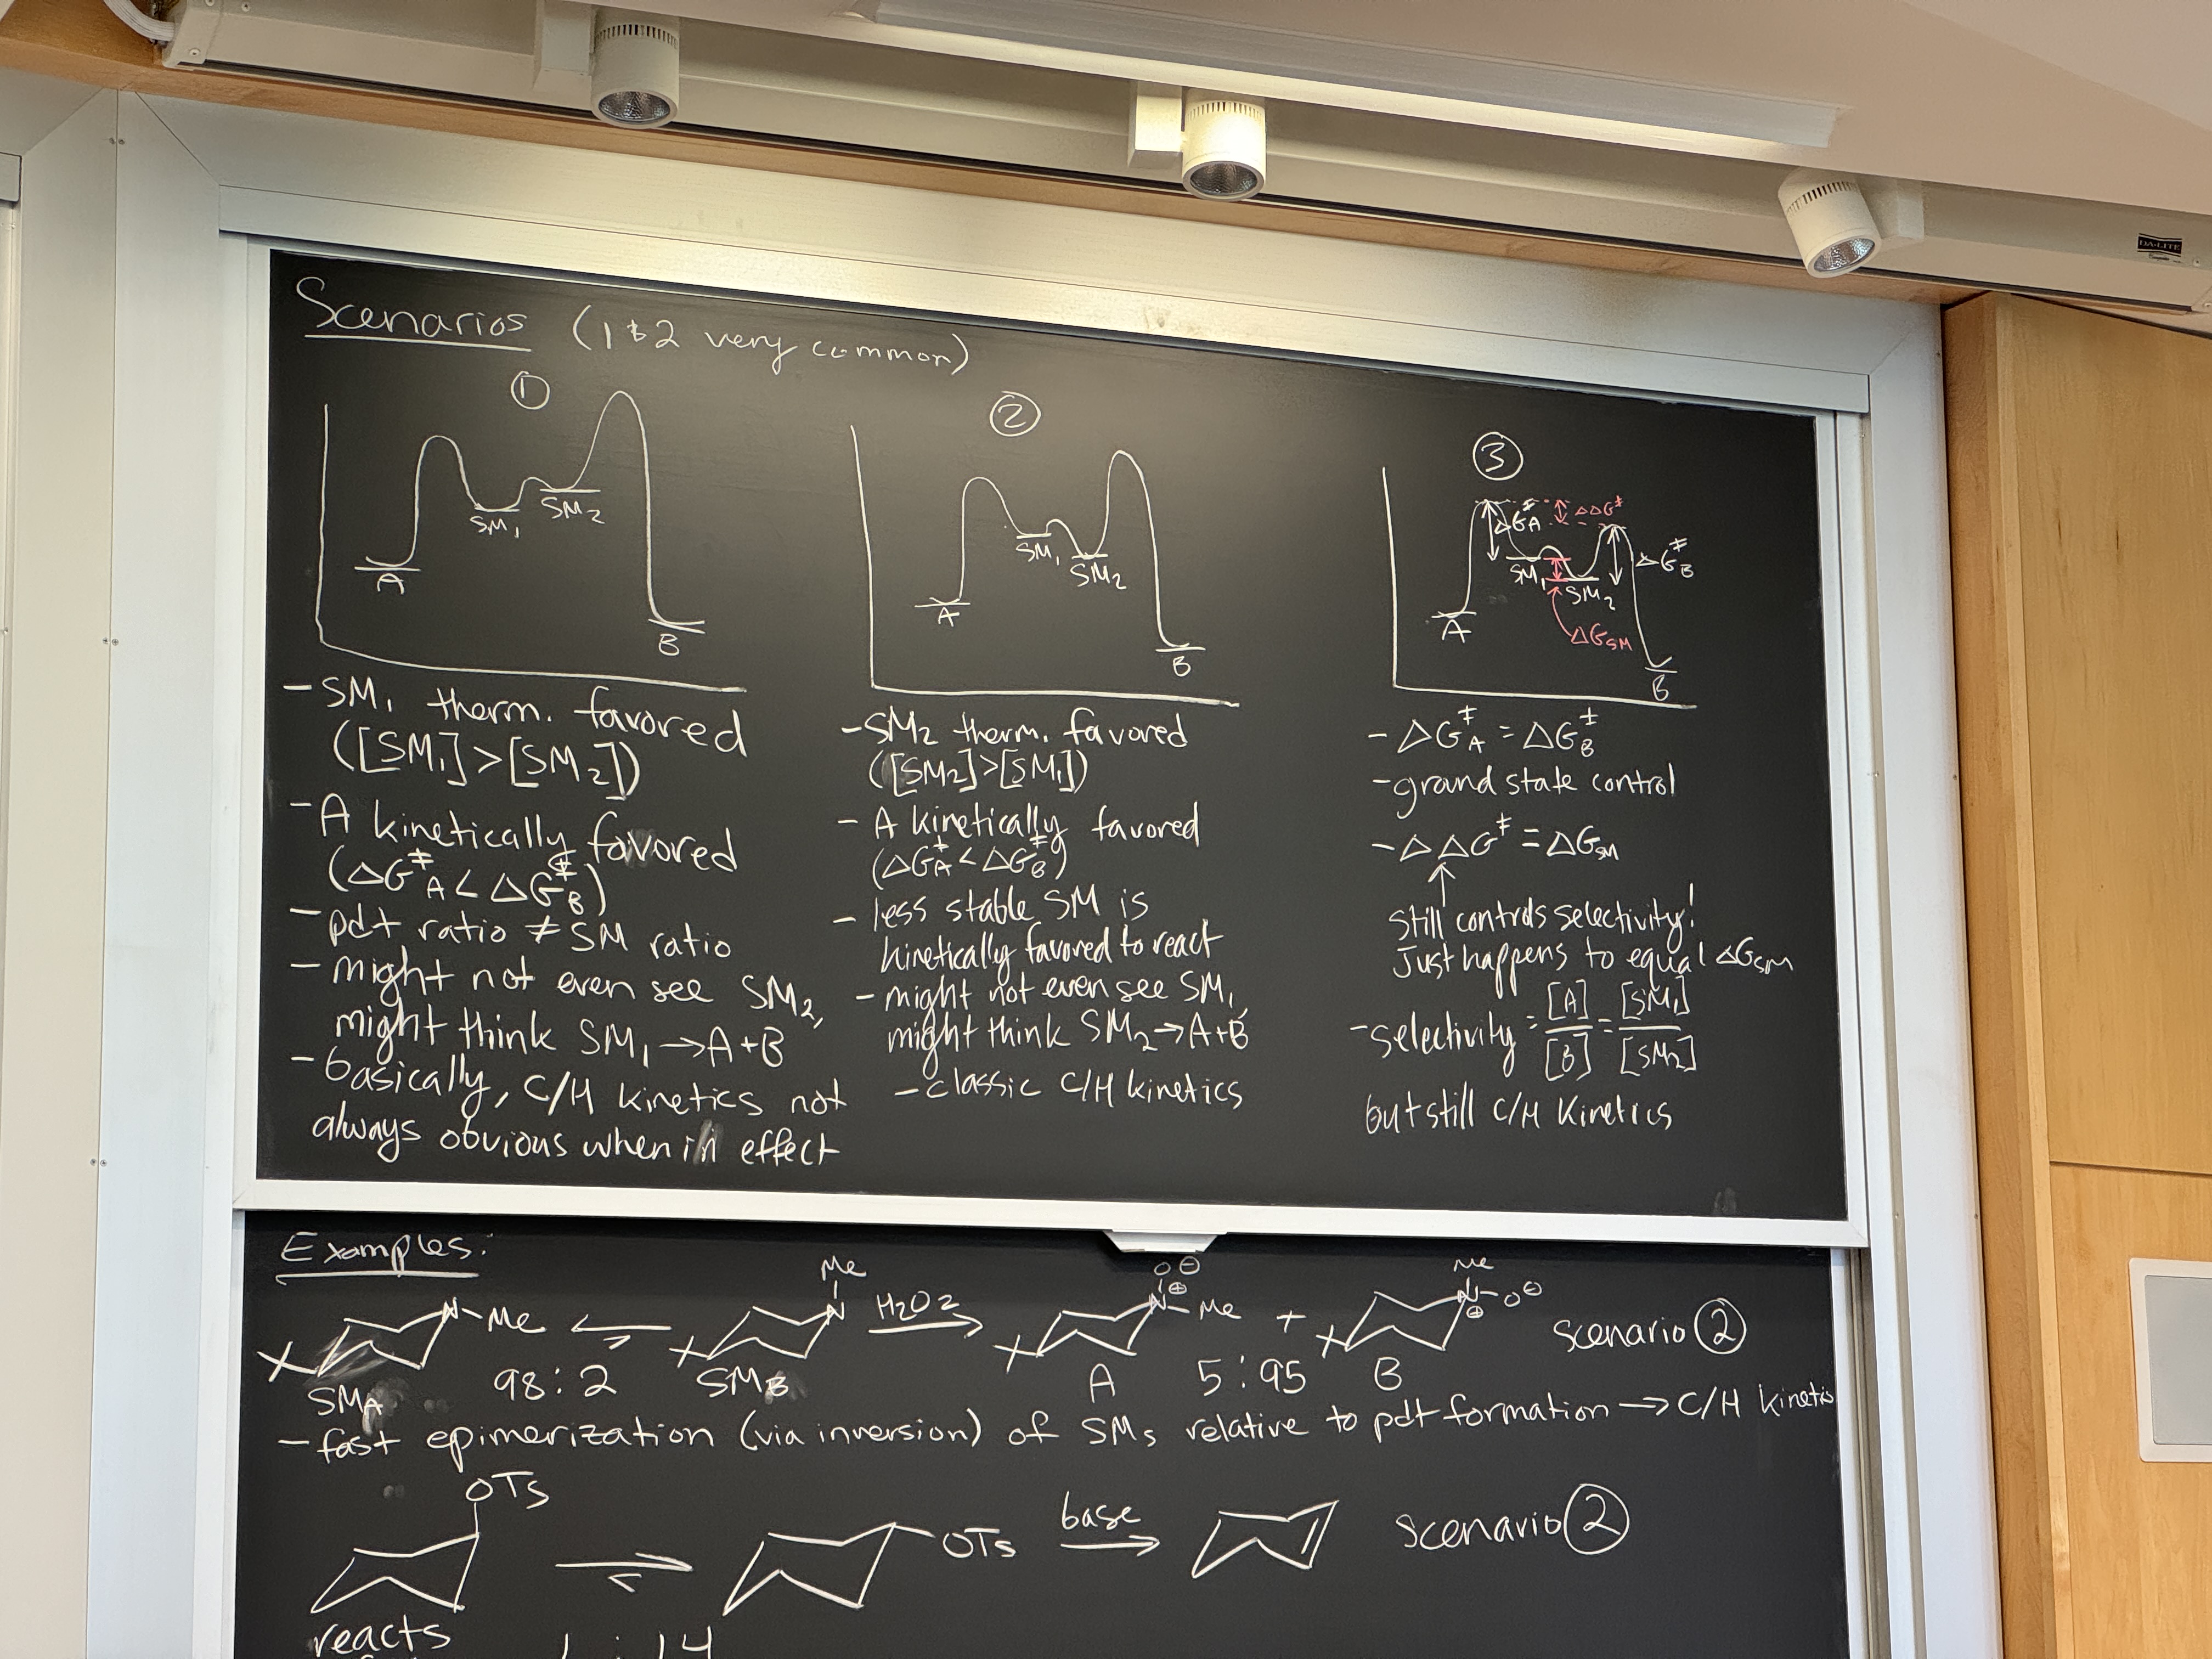 DA-LITE
Scenarios (1 & 2 very common)
①
SM₁
SM₂
A
B
- SM₁ therm. favored
([SM₁] > [SM₂])
- A kinetically favored
(ΔG‡A < ΔG‡B)
- pdt ratio ≠ SM ratio
- might not even see SM₂,
might think SM₁ → A+B
- basically, C/H kinetics not
always obvious when in effect
②
SM₁
SM₂
A
B
- SM₂ therm. favored
([SM₂] > [SM₁])
- A kinetically favored
(ΔG‡A < ΔG‡B)
- less stable SM is
kinetically favored to react
- might not even see SM₁,
might think SM₂ → A+B
- classic C/H kinetics
③
ΔG‡A
ΔΔG‡
ΔG‡B
SM₁
SM₂
A
ΔGSM
B
- ΔG‡A = ΔG‡B
- ground state control
- ΔΔG‡ = ΔGSM
↑
still controls selectivity!
Just happens to equal ΔGSM
- selectivity = [A]/[B] = [SM₁]/[SM₂]
but still C/H kinetics
Examples:
N-Me
Me
N
H₂O₂
O⊖
N⊕-Me
+
Me
N⊕-O⊖
scenario ②
SMA 98:2 SMB A 5:95 B
- fast epimerization (via inversion) of SMs relative to pdt formation → C/H kinetics
OTs
OTs
base
scenario ②
reacts
1 : 14